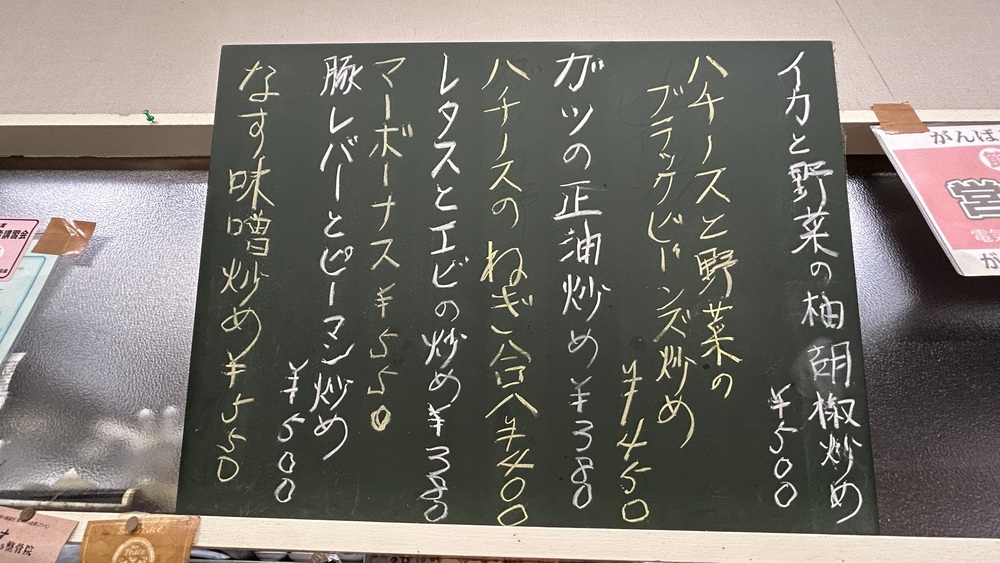 イカと野菜の柚胡椒炒め
¥500
ハチノスと野菜の
ブラックビーンズ炒め
¥450
ガツの正油炒め ¥380
ハチノスのねぎ合え ¥400
レタスとエビの炒め ¥380
マーボーナス ¥550
豚レバーとピーマン炒め
¥500
なす味噌炒め ¥550
がんば
営
電気
が
講習会
整骨院
Peace